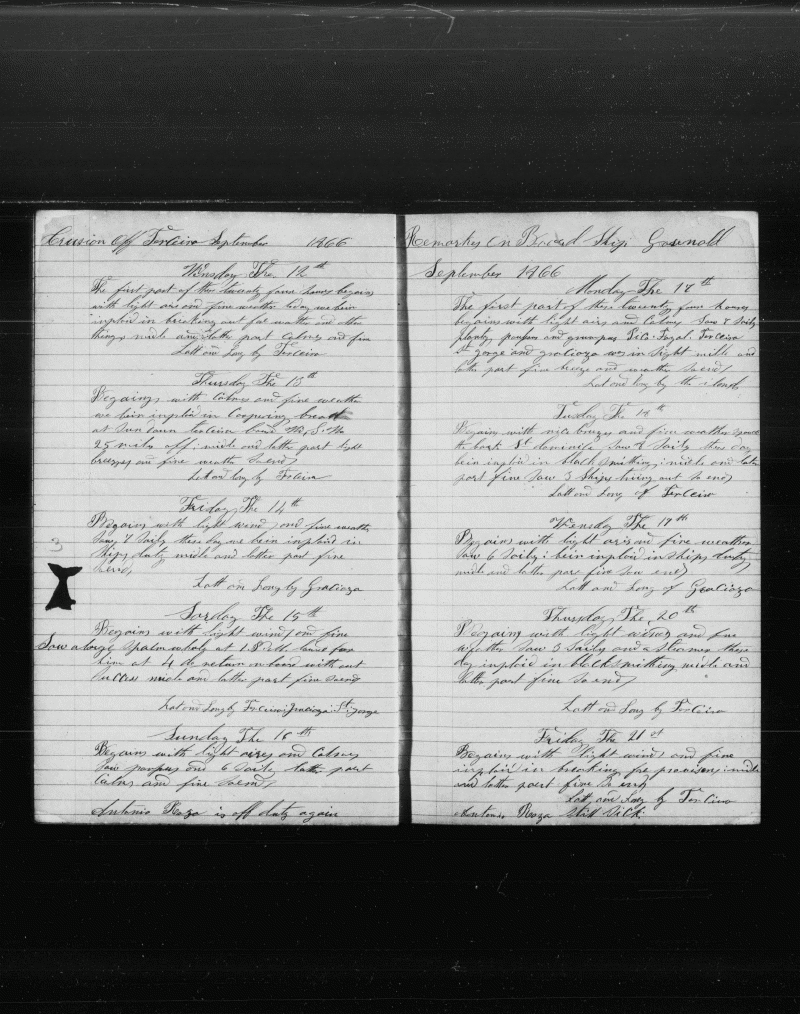 Crusion Off Terceira September 1866
Wensday The 12th
The first part of this twenty foure hours begains
with light airs and fine weather today we been
inploid in breaking out for watter and other
things midle and latter part Calms and fine
Latt and Long by Terceira
Thursday The 13th
Begains with Calms and fine weather
we bein inploid in Coopering bread
at Sun down Terceira bard
25 miles off: midle and latter part light
breezes and fine weather So ends
Latt and Long by Terceira
Friday The 14th
Begains with light wind and fine weather
Saw 7 Sails this day we been inploid in
Ships duty midle and latter part fine
So ends
3
Latt and Long by Gracioza
Sarday The 15th
Begains with light winds and fine
Saw a large Spalm whale at 1 lowerd for
him at 4 return onboard with out
Success midle and latter part fine So ends
Latt and Long by Terceira Gracioza St Jorge
Sunday The 16th
Begains with light aires and Calms
Saw porpuses and 6 Sails latter part
Calms and fine So ends
Antonio Roza is off duty again
Remarks On Board Ship Gosnold
September 1866
Monday The 17th
The first part of these twenty four hours
begains with light airs and Calms Saw 8 Sails
plenty porpuses and grampus Pico Fayal Terceira
St Jorge and gracioza was in Sight midle and
latter part fine breeze and weather So ends
Latt and long by the islands
Tusday The 18th
Begains with nice breezes and fine weather
the bark Saw 8 Sails this day
bein inploid in black smithing: midle and latter
part fine Saw 3 Ships So ends
Latt and Long of Terceira
Wensday The 19th
Begains with light airs and fine weather
Saw 6 Sails: bein inploid in Ships duty
midle and latter part fine So ends
Latt and Long of Gracioza
Thursday The 20th
Begains with light winds and fine
weather Saw 3 Sails and a steamer these
day inploid in blacksmithing midle and
latter part fine So ends
Latt and Long by Terceira
Friday The 21st
Begains with light winds and fine
inploid in breaking for provisions: midle
and latter part fine So ends
Latt and Long by Terceira
Antonio Roza Still Sick